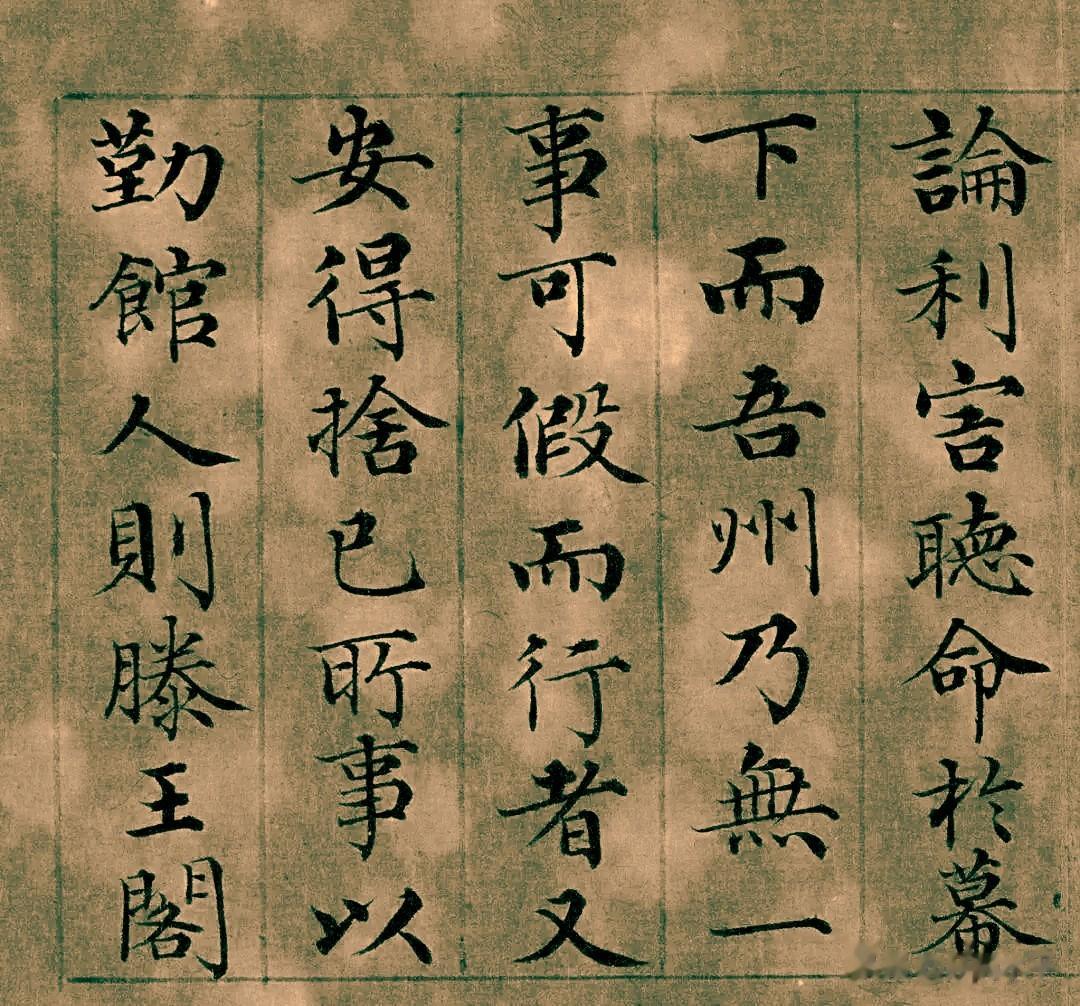 論利害聽命於幕
下而吾州乃無一
事可假而行者又
安得捨已所事以
勤館人則滕王閣